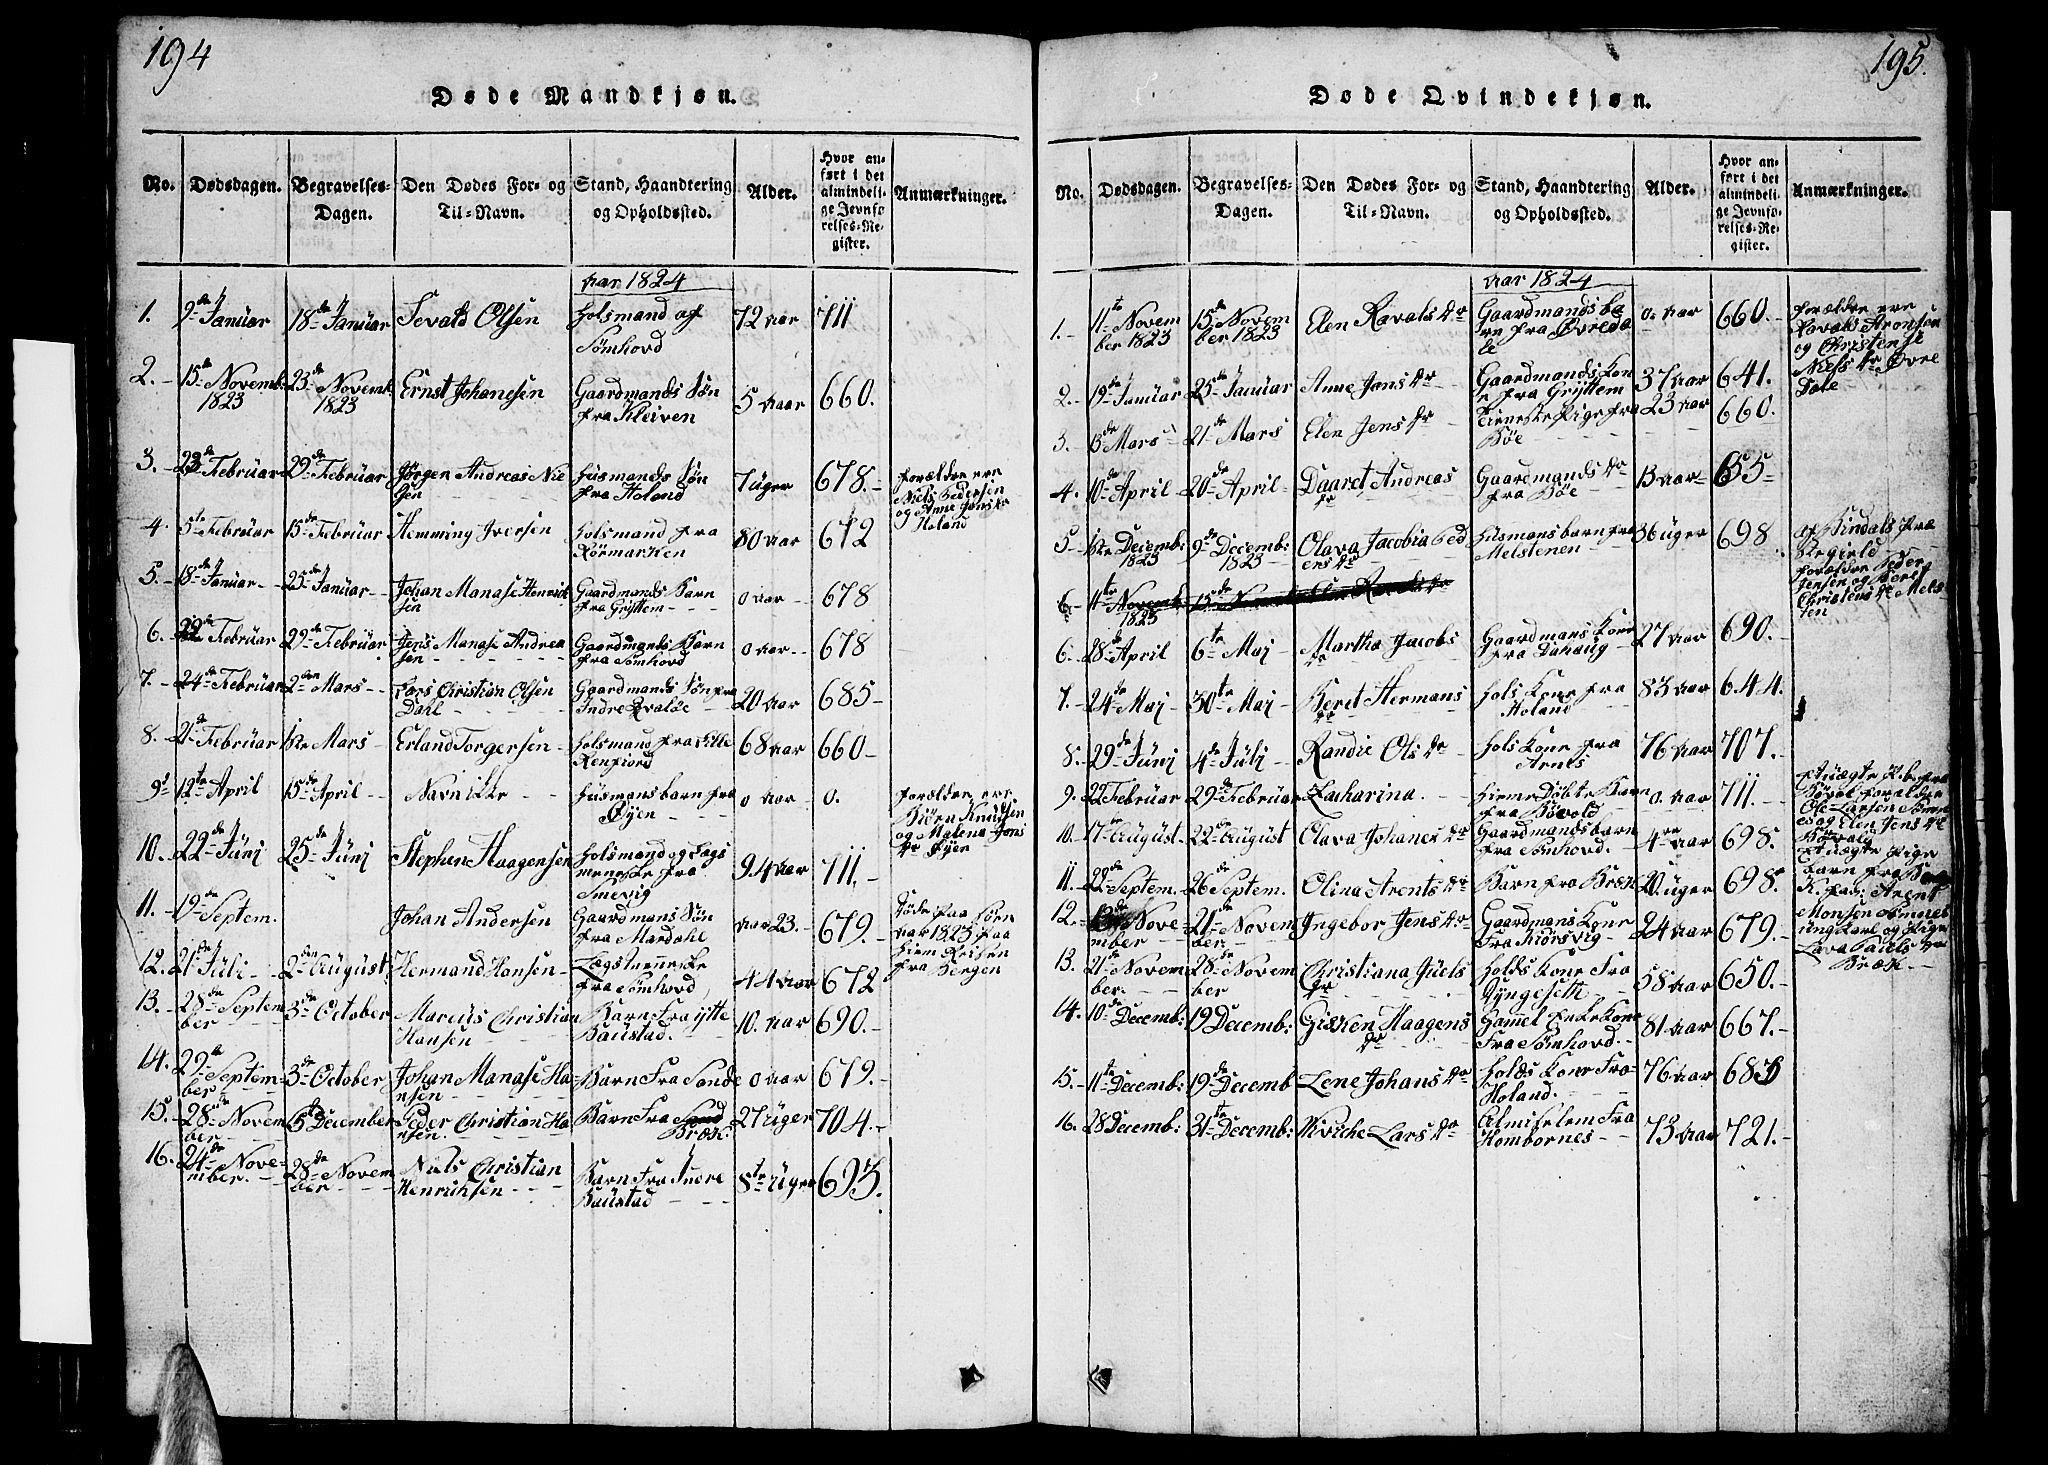 194
Døde Mandkjøn.
No. Dødsdagen. Begravelses-Dagen. Den Dødes For- og Til-Navn. Stand, Haandtering og Opholdssted. Alder. Hvor anført i det almindelige Jevnførelses-Register. Anmærkninger.
aar 1824
1. 9de Januar 18de Januar Sevald Olsen Holsmand af Sømhovd 72 aar 711
2. 15de Novemb: 1823 23de Novemb. 1823 Ernst Johanesen Gaardmands Søn fra Kleiven 5 aar 660.
3. 23de Februar 29de Februar Jørgen Andreas Nielsen Husmands Søn fra Holand 7 uger 678. Forældre ere Niels Pedersen og Anne Jens dr Holand
4. 5te Februar 15de Februar Hemming Iversen Holsmand fra Rørmarken 80 aar 672
5. 18de Januar 25de Januar Johan Manasi Henriksen Gaardmands Barn fra Gryttem 0 aar 678
6. 22de Februar 29de Februar Jens Manasi Andreasen Gaardmands Barn fra Sømhovd 0 aar 678
7. 24de Februar 2den Mars Lars Christian Olsen Dahl Gaardmands Søn fra Indre Qvaløe 20 aar 685
8. 21de Februar 1ste Mars Erland Torgersen Holsmand fra Lille Renfiord 68 aar 660
9. 12te April 15de April Navn ikke Husmans barn fra Øyen 0 aar 0. Forældre ere Biørn Knudsen og Malena Jons dr Øyen
10. 22de Juni 25de Juni Stephen Haagensen Holsmand og Lægs menneske fra Smevig 94 aar 711.
11. 19de Septem. Johan Andersen Gaardmans Søn fra Mardahl aar 23. 679. Døde paa Søen aar 1823 paa Hiem Reisen fra Bergen
12. 21de Juli 2den August Hermand Hansen Lægs menneske fra Sømhovd 44 aar 672
13. 28de September 3de October Marcus Christian Hansen Barn Fra ytte Baustad. 10. aar 690.
14. 29de September 3de October Johan Manasi Hansen Barn Fra Sonde 0 aar 679.
15. 28de November 5te December Peder Christian Hansen. Barn Fra Sand Bræk: 27 uger 704.
16. 24de November. 28de November Niels Christian Henrichsen Barn Fra Indre Baustad 8te uger 695.
195.
Døde Qvindekjøn.
No. Dødsdagen. Begravelses-Dagen. Den Dødes For- og Til-Navn. Stand, Haandtering og Opholdssted. Alder. Hvor anført i det almindelige Jevnførelses-Register. Anmærkninger.
aar 1824
1. 11te November 1823 15de November 1823 Elen Ravals dr Gaardmands barn fra Øvredale 0. aar 660. Forældre ere Ravald Aronsen og Christense Niels dr Øvre Dale
2. 19de Januar 25de Januar Anne Jons dr Gaardmands Kone fra Gryttem 37 aar 641.
3. 13de Mars 21de Mars Elen Jens dr Tieneste Pige fra Bøe 23 aar 660.
4. 10de April 20de April Daaret Andreas dr Gaardmands dr fra Bøe 13 aar 655
5. 1ste Decemb: 1823 9de Decemb: 1823 Olava Jacobia Pedersens dr Husmans barn fra Melstenen 36 uger 698
6. 11te Novemb 1823 15de Novemb Elen Ravals dr
6. 28de April 6te Maj Martha Jacobs dr Gaardmans Kone fra Dahaug 27 aar 690.
7. 24de Maj 30te Maj Beret Hermans dr Hols Kone fra Holand 83 aar 644.
8. 29de Juni 4de Juli Randie Ols dr Hols Kone fra Arnes 76 aar 707.
9. 22 Februar 29de Februar Zacharina. Hieme Døbt Barn fra Bøvold 0. aar 711.
10. 17de August. 22de August Olava Johanes dr Gaardmands barn fra Sømhovd. 4re aar 698.
11. 22de Septem. 26de Septem. Olina Arents dr Barn fra Bræk 20 uger 698.
12. 13de November 21de November Ingebor Jens dr Gaardmans Kone Fra Kiørsvig 24 aar 679.
13. 21de November. 28de November Christiana Juels dr Holds Kone Fra Lyngeseth 58 aar 650.
14. 10de Decemb: 19 Decemb: Gisken Haagens dr Gamel Enke Kone Fra Sømhovd. 81 aar 667.
15. 11te Decemb: 19de Decemb Lene Johans dr Holds Kone Fra Holand. 76 aar 685
16. 28 Decemb: 31te Decemb: Wivicke Lars dr Almiselem Fra Hombornes 73 aar 721.